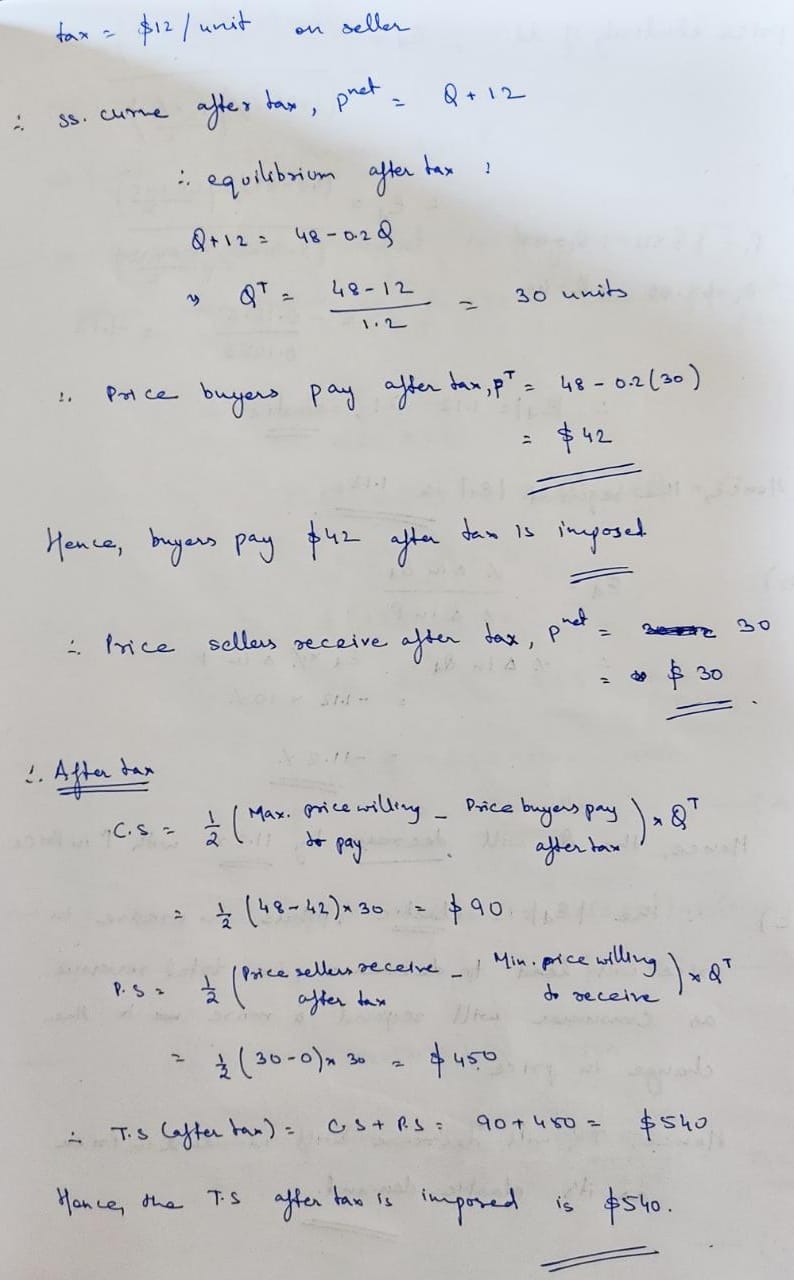 tax = $12/unit on seller
∴ ss. curve after tax, p^net = Q + 12
∴ equilibrium after tax :
Q+12 = 48 - 0.2Q
⇒ Q^T = (48-12)/1.2 = 30 units
∴ Price buyers pay after tax, p^T = 48 - 0.2(30)
= $42
Hence, buyers pay $42 after tax is imposed
∴ Price sellers receive after tax, p^net = 30
= $30.
∴ After tax
C.S = 1/2 (Max. price willing to pay - Price buyers pay after tax) × Q^T
= 1/2 (48-42) × 30 = $90.
P.S = 1/2 (Price sellers receive after tax - Min. price willing to receive) × Q^T
= 1/2 (30-0) × 30 = $450
∴ T.S (after tax) = CS + P.S = 90 + 450 = $540
Hence, the T.S after tax is imposed is $540.